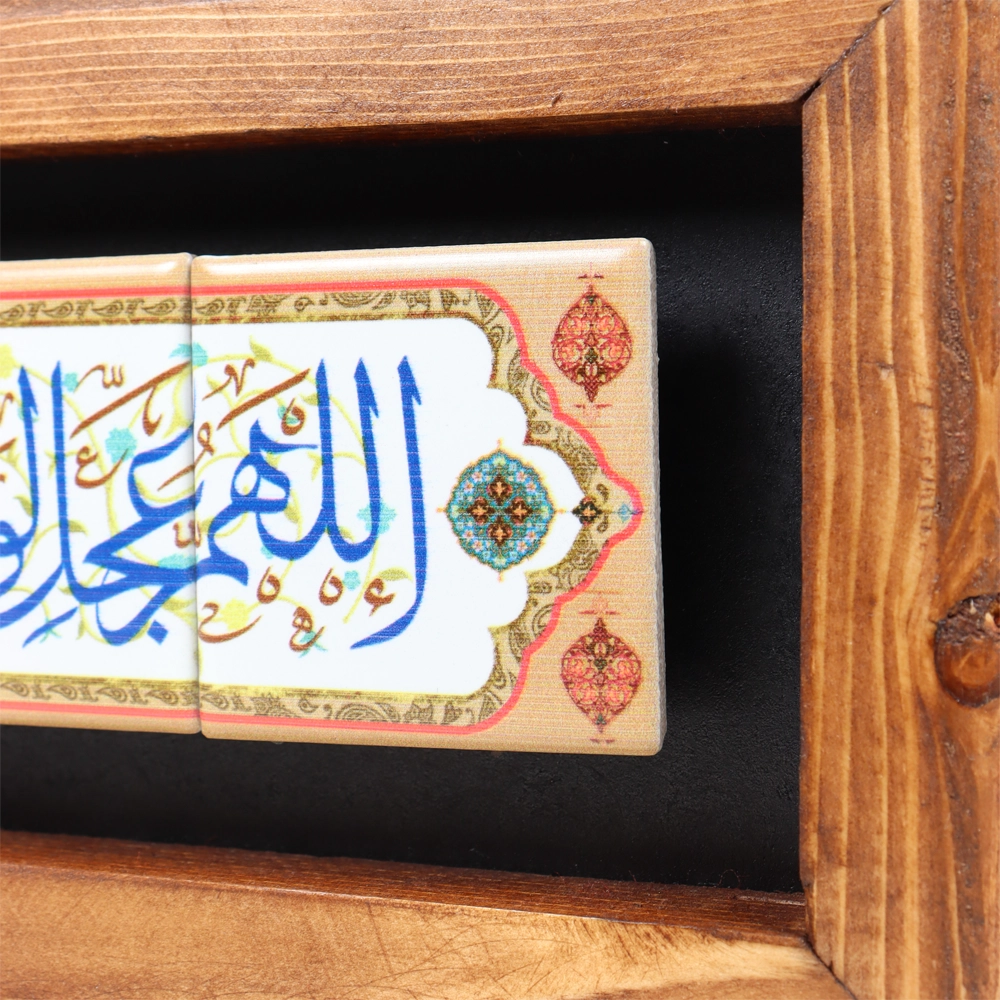 اللهم عجل